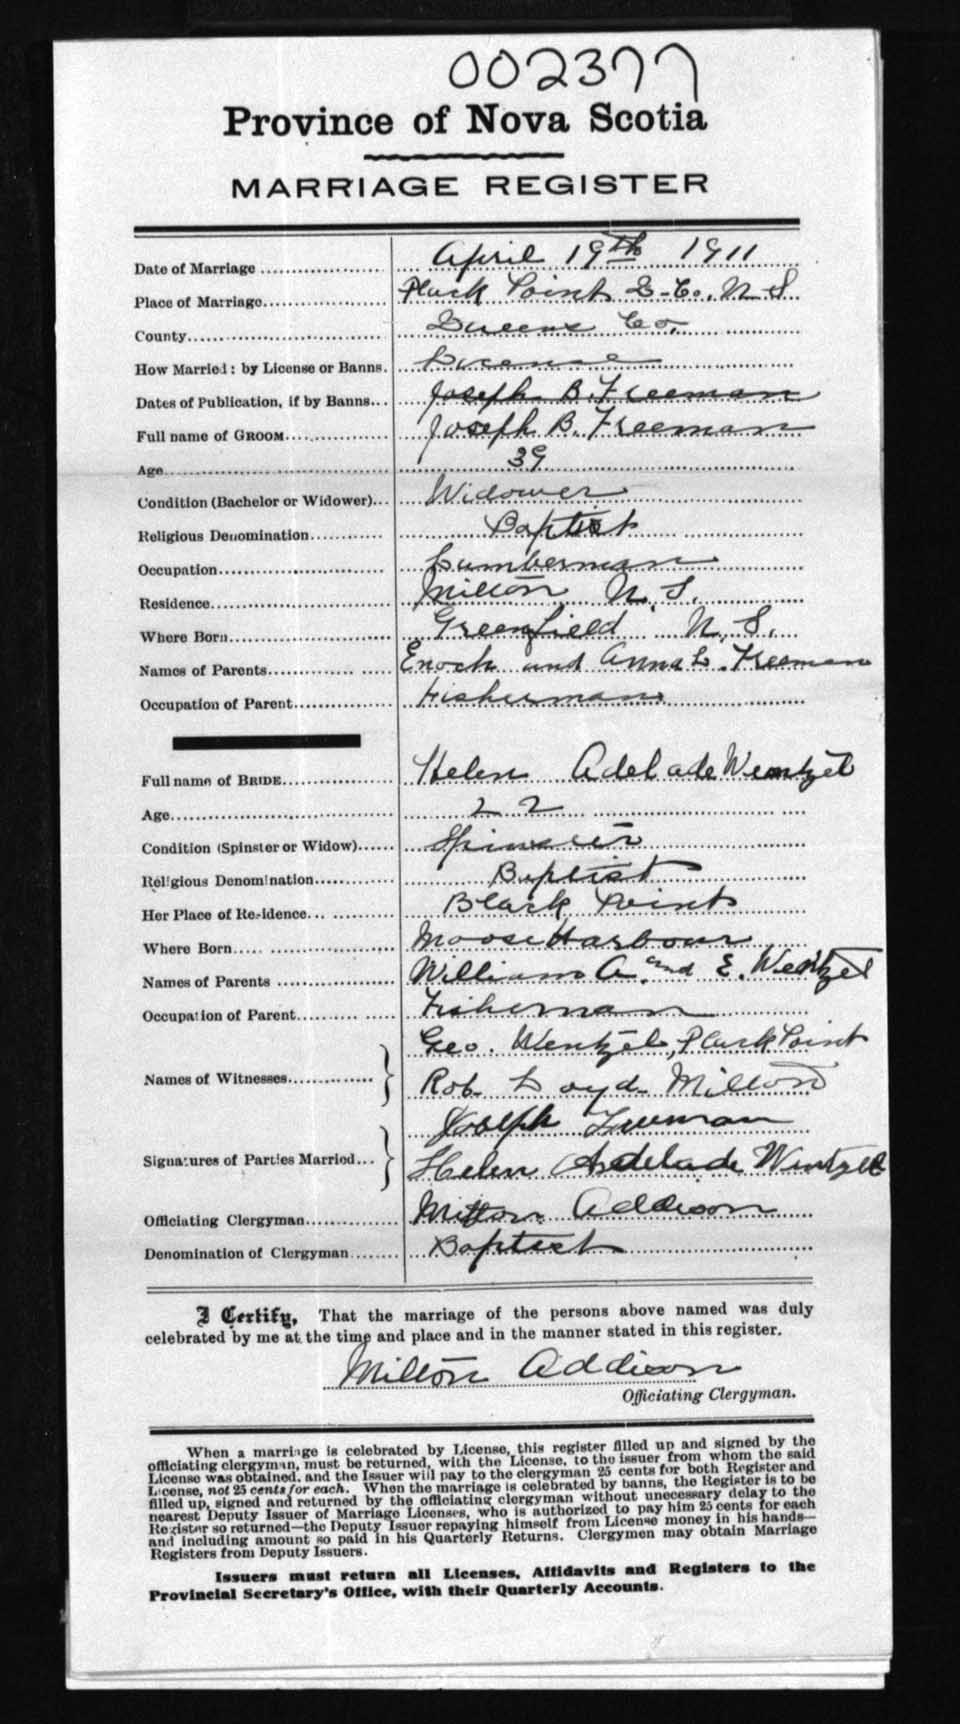 002377
Province of Nova Scotia
MARRIAGE REGISTER
Date of Marriage April 19th 1911
Place of Marriage Black Point Q-Co. N S
County Queens Co.
How Married: by License or Banns. License
Dates of Publication, if by Banns Joseph B. Freeman
Full name of GROOM Joseph B. Freeman
Age 39
Condition (Bachelor or Widower) Widower
Religious Denomination Baptist
Occupation Lumberman
Residence Milton N. S.
Where Born Greenfield N. S.
Names of Parents Enoch and Anna L. Freeman
Occupation of Parent Fisherman
Full name of BRIDE Helen Adelade Wentzel
Age 22
Condition (Spinster or Widow) Spinster
Religious Denomination Baptist
Her Place of Residence Black Point
Where Born Moose Harbour
Names of Parents William A. and E. Wentzel
Occupation of Parent Fisherman
Names of Witnesses Geo. Wentzel, Black Point
Rob Loyd Milton
Signatures of Parties Married Joseph Freeman
Helen Adelade Wentzell
Officiating Clergyman Milton Addison
Denomination of Clergyman Baptist
I Certify, That the marriage of the persons above named was duly
celebrated by me at the time and place and in the manner stated in this register.
Milton Addison
Officiating Clergyman.
When a marriage is celebrated by License, this register filled up and signed by the
officiating clergyman, must be returned, with the License, to the issuer from whom the said
License was obtained, and the Issuer will pay to the clergyman 25 cents for both Register and
License, not 25 cents for each. When the marriage is celebrated by banns, the Register is to be
filled up, signed and returned by the officiating clergyman without unnecessary delay to the
nearest Deputy Issuer of Marriage Licenses, who is authorized to pay him 25 cents for each
Register so returned—the Deputy Issuer repaying himself from License money in his hands—
and including amount so paid in his Quarterly Returns. Clergymen may obtain Marriage
Registers from Deputy Issuers.
Issuers must return all Licenses, Affidavits and Registers to the
Provincial Secretary's Office, with their Quarterly Accounts.